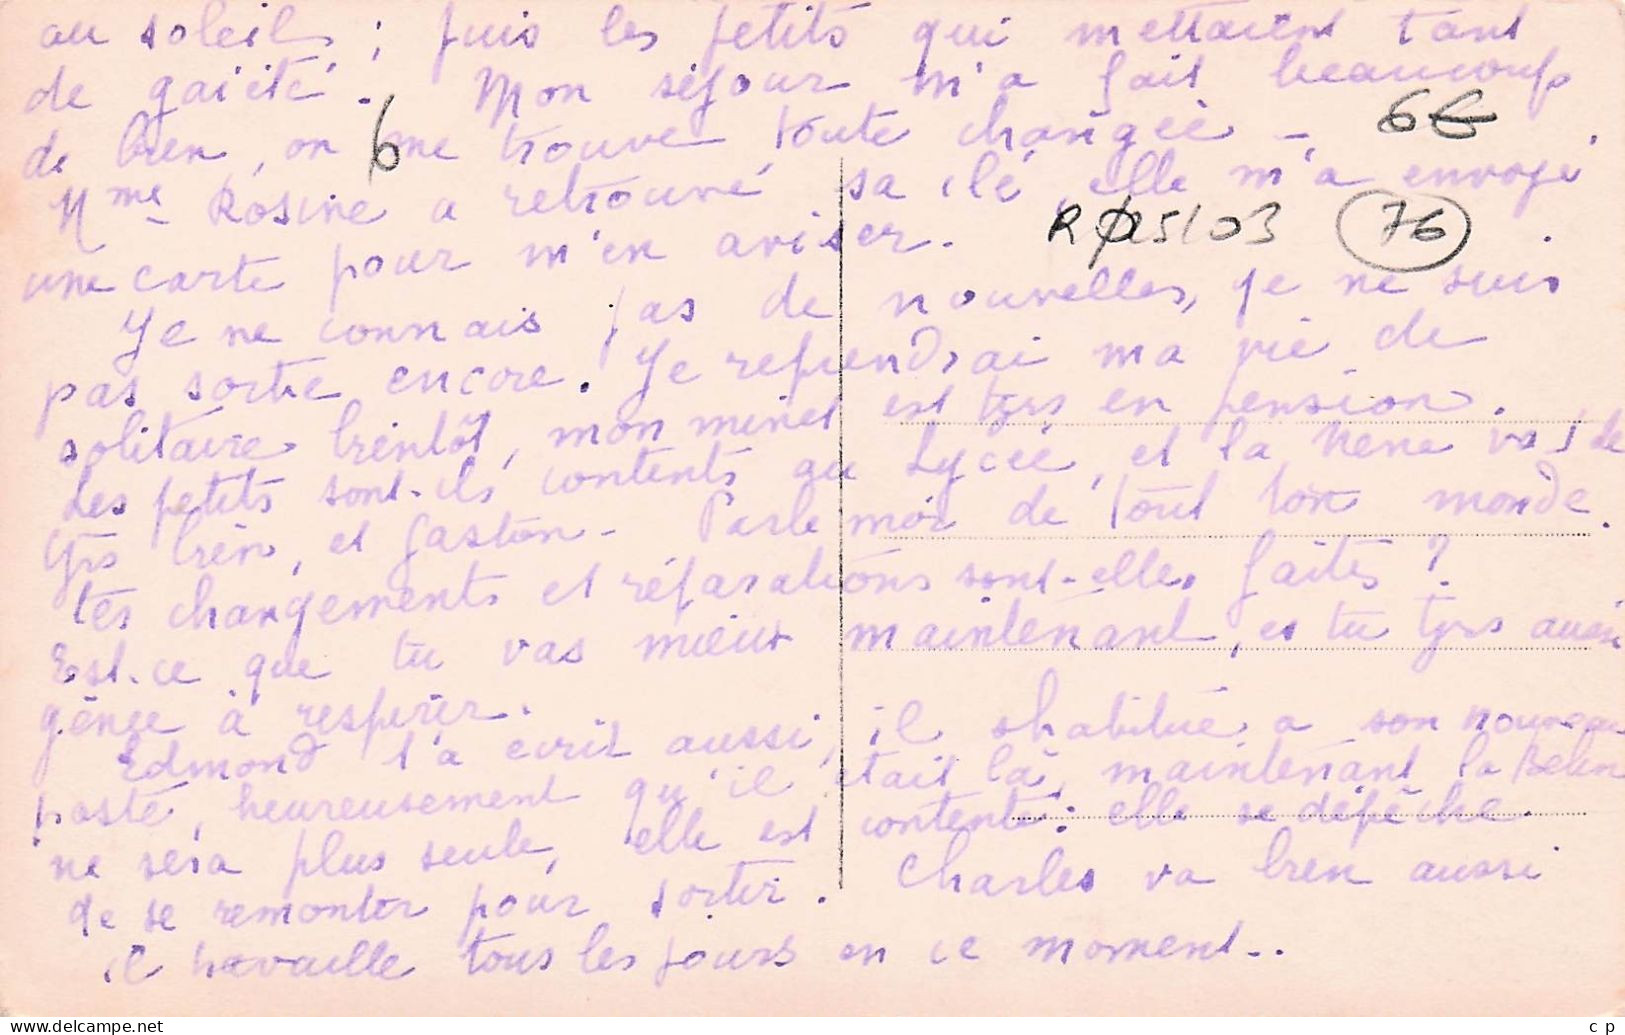 au soleil ; puis les petits qui mettaient tant
de gaieté. Mon séjour m'a fait beaucoup
de bien, on me trouve toute changée -
6 66
Mme Rosine a retrouvé sa clé, elle m'a envoyé
une carte pour m'en aviser.
R 25103 76
Je ne connais pas de nouvelles, je ne suis
pas sortie encore. Je reprendrai ma vie de
solitaire bientôt, mon minet est tjrs en pension.
Les petits sont-ils contents au Lycée, et la Nène
tjrs bien, et Gaston - Parle moi de tout ton monde.
tes changements et réparations sont-elles faites ?
Est-ce que tu vas mieux maintenant, es tu tjrs aussi
gênée à respirer.
Edmond t'a écrit aussi, il shabitue a son nouveau
poste, heureusement qu'il était là, maintenant la
ne sera plus seule, elle est contente : elle se dépêche
de se remonter pour sortir. Charles va bien aussi
il travaille tous les jours en ce moment..
www.delcampe.net
cp